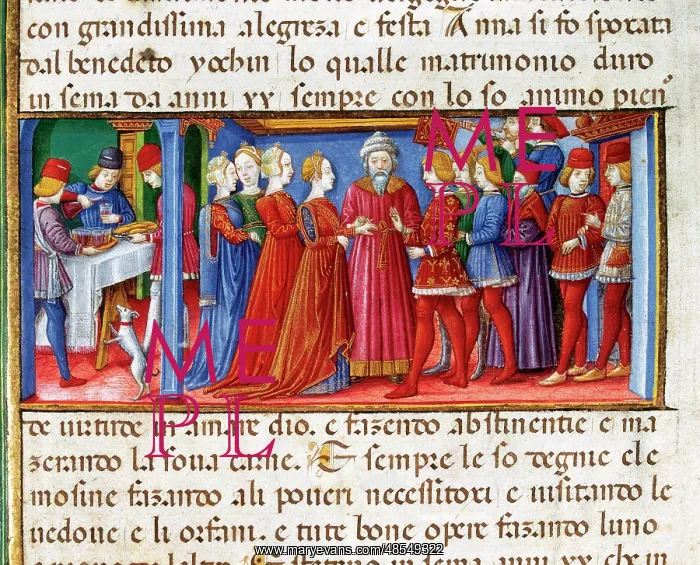 con grandissima alegreza e festa Anna si fo sposata
dal benedeto yochin lo qualle matrimonio duro
in sema da anni xx sempre con lo so animo pien
ME
PL
ME
PL
de virtude in amare dio. e fazendo abstinentie e ma
zerando la soua carne. E sempre le so degnie ele
mosine fazando ali poueri necessitori e uisitando le
uedoue e li orfani. e tute bone opere fazando luno
www.maryevans.com/48549322
in sema anni xx che in